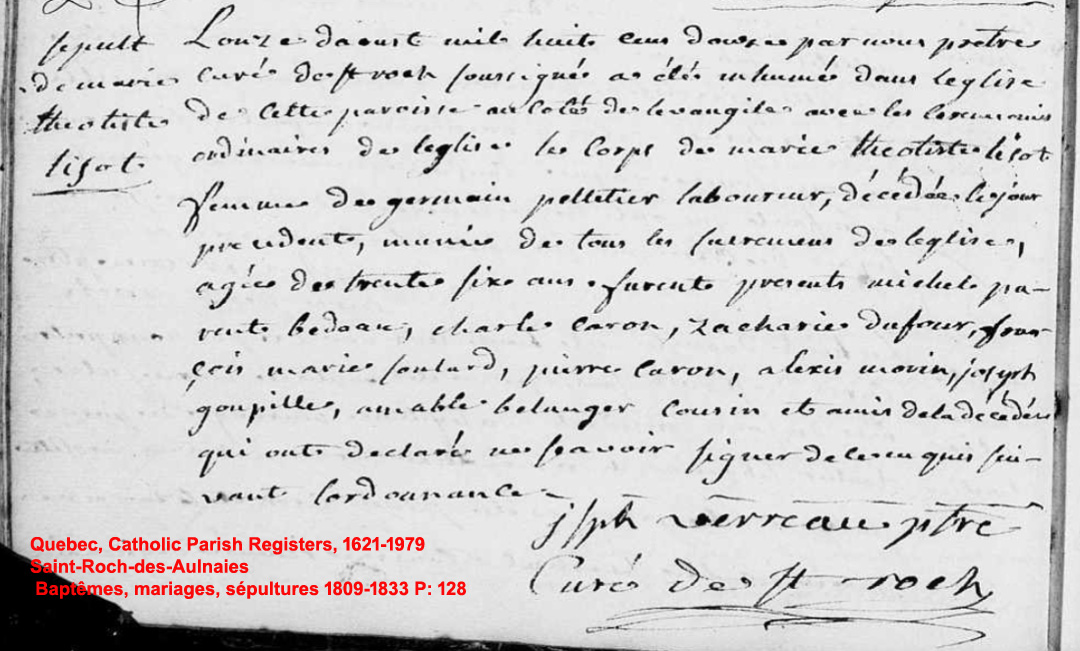 sepult
de marie
theotiste
lisot
Lonze daoust mil huit cens douze par nous prêtre
Curé de St roch soussigné a élé inhumé dans leglise
de Cette paroisse au coté de levangile avec les ceremonies
ordinaires de leglise le Corps de marie theotiste lisot
femme de germain pelletier laboureur, décédée le jour
precedent, munie de tous les sacremens de leglise,
agée de trente six ans. furent presents michel pa-
rent bedeau, charle Caron, Zacharie dufour, fran-
çois marie soulard, pierre Caron, alexis morin, joseph
goupille, amable belanger Cousin et amis de la décédée
qui ont declaré ne sçavoir signer de ce enquis sui-
vant lordonnance
jsph verreau ptre
Curé de St roch
Quebec, Catholic Parish Registers, 1621-1979
Saint-Roch-des-Aulnaies
Baptêmes, mariages, sépultures 1809-1833 P: 128